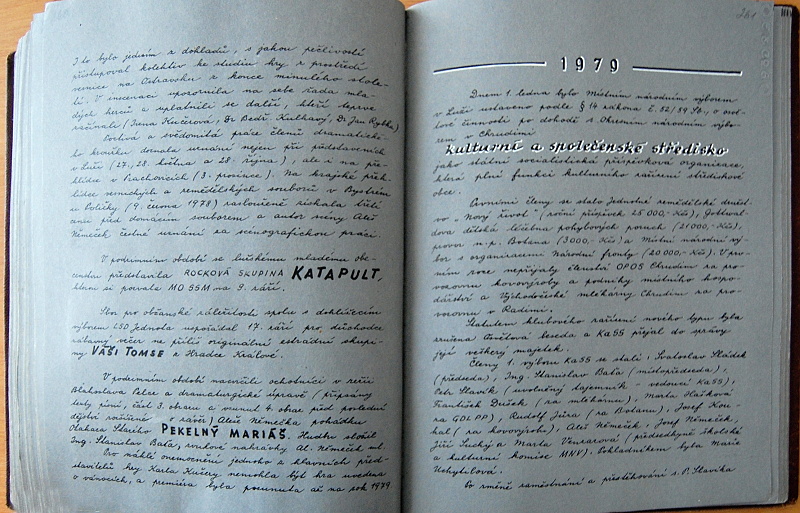 I to bylo jedním z dokladů, s jakou pečlivostí
přistupoval kolektiv ke studiu hry z prostředí
vesnice na Ostravsku z konce minulého stole-
tí. V inscenaci upozornila na sebe řada mla-
dých herců a uplatnili se další, kteří teprve
začínali (Irena Kučerová, Dr. Bedř. Kulhavý, Dr. Jan Rybka)
Poctivá a svědomitá práce členů dramatické-
ho kroužku doznala uznání nejen při představeních
v Luži (27., 28. května a 28. října), ale i na pře-
hlídce v Prachovicích (3. prosince). Na krajské přeh-
lídce vesnických a zemědělských souborů v Bystrém
u Poličky (9. června 1978) zaslouženě získala vítě-
ství před domácím souborem a autor scény Aleš
Němeček čestné uznání za scénografickou práci.
V podzimním období se lužskému mladému obe-
censtvu představila ROCKOVÁ SKUPINA KATAPULT,
kterou si pozvala MO SSM na 9. září.
Sbor pro občanské záležitosti spolu s dohlížecím
výborem LSD Jednota uspořádal 17. září pro důchodce
zábavný večer na příliš originální estrádní skupi-
ny VÁŠI TOMSE z Hradce Králové.
V podzimním období nacvičili ochotníci v režii
Blahoslava Pelce a dramaturgické úpravě (připsány
texty písní, část 3. obrazu a vsunut 4. obraz před poslední
dějství rozšířené o závěr) Aleše Němečka pohádku
Otakara Starého PEKELNÝ MARIÁŠ. Hudbu složil
Ing. Stanislav Baťa, zvukové nahrávky Al. Němeček ml.
Pro náhlé onemocnění jednoho z hlavních před-
stavitelů hry Karla Kučery nemohla být hra uvedena
o vánocích, a premiéra byla posunuta až na rok 1979.
261
1979
Dnem 1. ledna bylo Místním národním výborem
v Luži ustaveno podle § 14 zákona č. 52/59 Sb., o osvě-
tové činnosti po dohodě s Okresním národním výbo-
rem v Chrudimi
kulturní a společenské středisko
jako státní socialistická příspěvková organizace,
která plní funkci kulturního zařízení střediskové
obce.
Prvními členy se stalo Jednotné zemědělské družst-
vo „Nový život" (roční příspěvek 25 000,-Kčs), Gottwal-
dova dětská léčebna pohybových poruch (21 000,-Kčs),
provoz n. p. Botana (3 000,-Kčs) a Místní národní vý-
bor s organizacemi Národní fronty (20 000,-Kčs). V prv-
ním roce nepřijaly členství OPOS Chrudim za pro-
vozovnu kovovýroby a podniky místního hospo-
dářství a Východočeské mlékárny Chrudim za pro-
vozovnu v Radimi.
Statutem klubového zařízení nového typu byla
zrušena Osvětová beseda a KaSS přejal do správy
její veškerý majetek.
Členy 1. výboru KaSS se stali: Svatoslav Sládek
(předseda), Ing. Stanislav Baťa (místopředseda),
Petr Slavík (uvolněný tajemník - vedoucí KaSS),
František Dušek (za mlékárnu), Marta Hašková
za GDLPP), Rudolf Jůza (za Botanu), Josef Kou-
kal (za kovovýrobu), Aleš Němeček, Josef Němeček,
Jiří Suchý a Marta Venzarová (předsedkyně školské
a kulturní komise MNV). Pokladníkem byla Marie
Uchytilová.
Po změně zaměstnání a přestěhování s. P. Slavíka